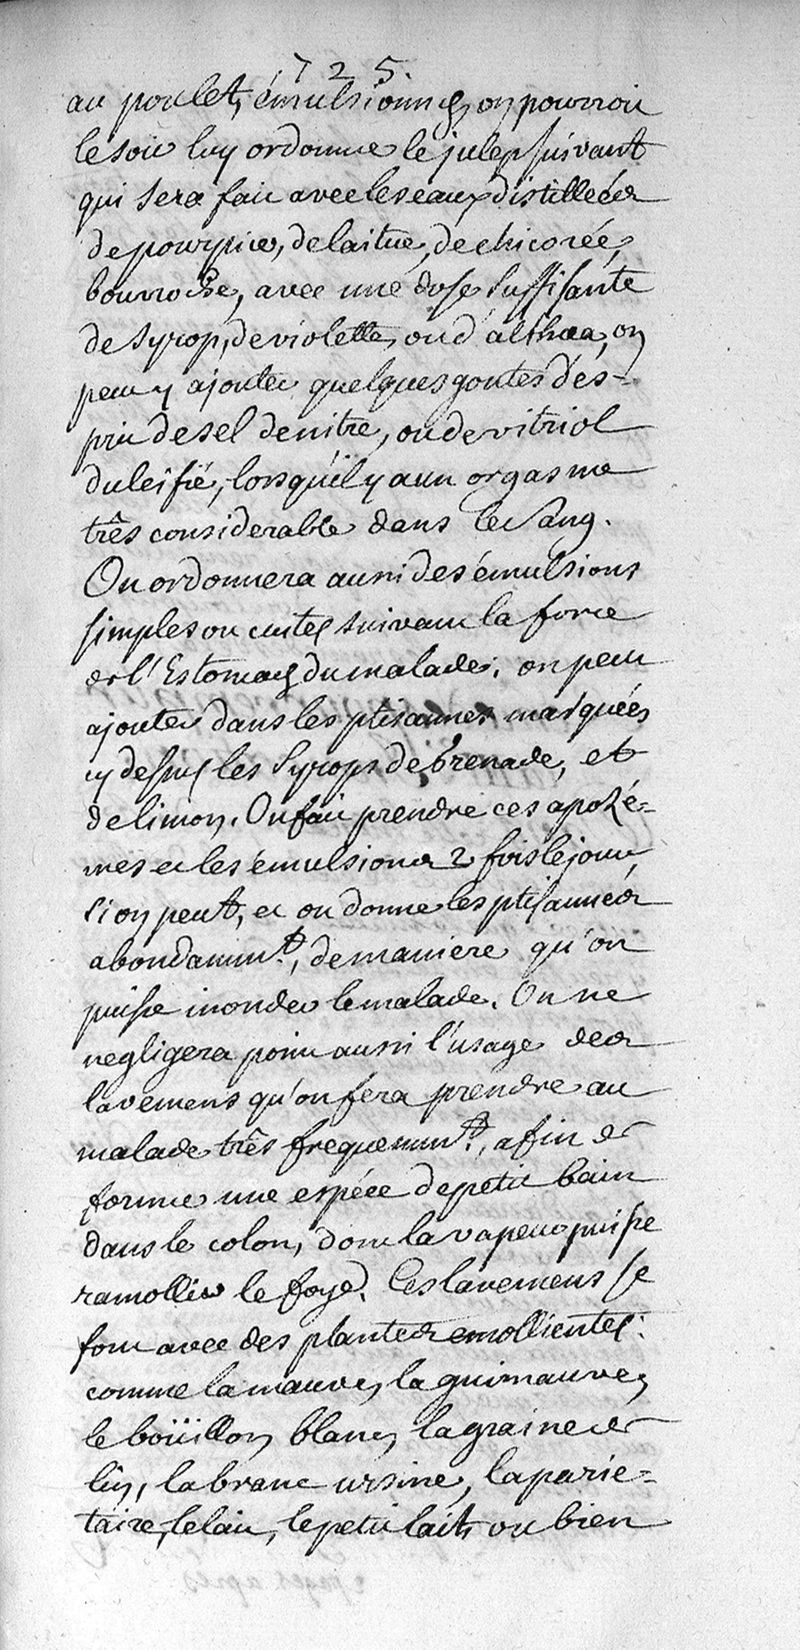 725.
au poulet, émulsionnés, on pourroit
le soir luy ordonner le julep suivant
qui sera fait avec les eaux distillées
de pourpier, de laitue, de chicorée,
bourroche, avec une dose suffisante
de Syrop, de violette, ou d'althæa, on
peut y ajouter quelques goutes d'es-
prit de sel de nitre, ou de vitriol
dulcifié, lorsqu'il y a un orgasme
très considerable dans le Sang.
On ordonnera aussi des émulsions
simples ou cuites suivant la force
de l'Estomach du malade; on peut
ajouter dans les ptisannes marquées
cy dessus les Syrops de Grenade, et
de limon. On fait prendre ces apozé=
mes et les émulsions 2 fois le jour,
si on peut, et on donne les ptisannes
abondamm.t, de maniere qu'on
puisse inonder le malade. On ne
negligera point aussi l'usage des
lavemens qu'on fera prendre au
malade très frequemm.t, afin de
former une espéce de petit bain
dans le colon, dont la vapeur puisse
ramollir le foye. Ces lavemens se
font avec des plantes emollientes:
comme la mauve, la guimauve,
le boüillon blanc, la graine de
lin, la branc ursine, la parie=
taire, le lait, le petit lait, ou bien